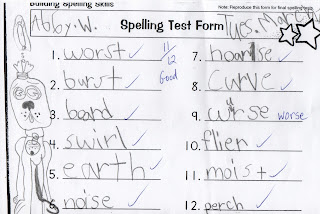 Building Spelling Skills
Note: Reproduce this form for final spelling tests.
Abby.W.
Spelling Test Form
Tues. March
1. worst
11
12
Good
2. burst
3. board
4. swirl
5. earth
6. noise
7. hoarse
8. curve
9. urse worse
10. flier
11. moist
12. perch